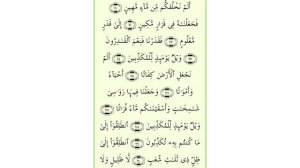 أَلَمْ نَخْلُقكُّم مِّن مَّآءٍ مَّهِينٍ ﴿٢٠﴾
فَجَعَلْنَٰهُ فِى قَرَارٍ مَّكِينٍ ﴿٢١﴾ إِلَىٰ قَدَرٍ
مَّعْلُومٍ ﴿٢٢﴾ فَقَدَرْنَا فَنِعْمَ ٱلْقَٰدِرُونَ
﴿٢٣﴾ وَيْلٌ يَوْمَئِذٍ لِّلْمُكَذِّبِينَ ﴿٢٤﴾ أَلَمْ
نَجْعَلِ ٱلْأَرْضَ كِفَاتًا ﴿٢٥﴾ أَحْيَآءً
وَأَمْوَٰتًا ﴿٢٦﴾ وَجَعَلْنَا فِيهَا رَوَٰسِىَ
شَٰمِخَٰتٍ وَأَسْقَيْنَٰكُم مَّآءً فُرَاتًا ﴿٢٧﴾
وَيْلٌ يَوْمَئِذٍ لِّلْمُكَذِّبِينَ ﴿٢٨﴾ ٱنطَلِقُوٓا۟ إِلَىٰ
مَا كُنتُم بِهِۦ تُكَذِّبُونَ ﴿٢٩﴾ ٱنطَلِقُوٓا۟ إِلَىٰ
ظِلٍّ ذِى ثَلَٰثِ شُعَبٍ ﴿٣٠﴾ لَّا ظَلِيلٍ وَلَا